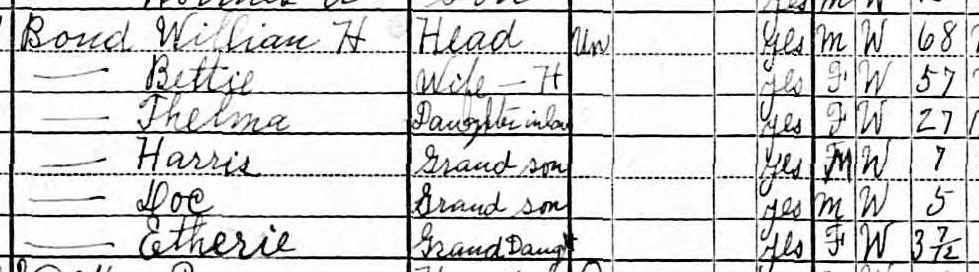 Son Yes M W
Bond William H Head Un Yes M W 68
— Bettie Wife — H Yes F W 57
— Thelma Daughter in law Yes F W 27
— Harris Grand son Yes M W 7
— Doc Grand son Yes M W 5
— Etherie Grand Daugt Yes F W 3 7/12